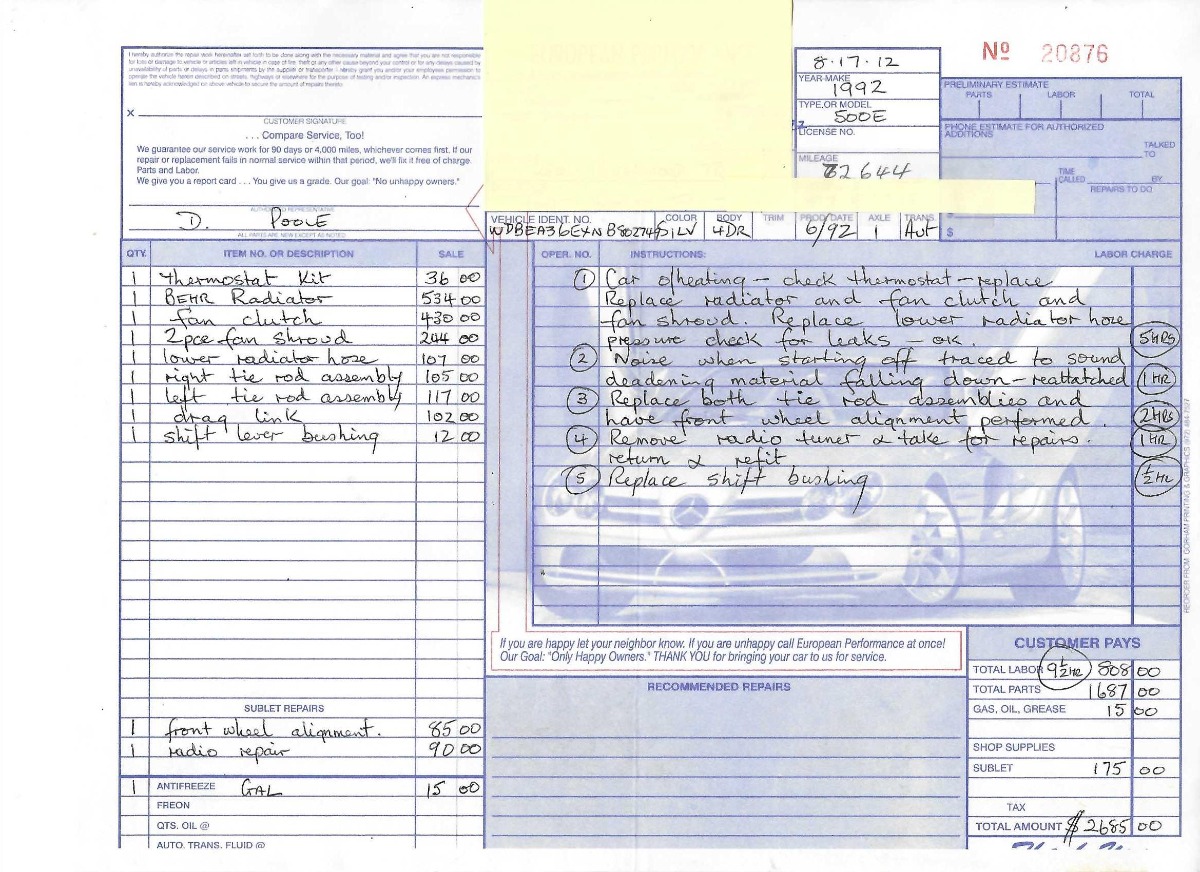 I hereby authorize the repair work hereinafter set forth to be done along with the necessary material and agree that you are not responsible
for loss or damage to vehicle or articles left in vehicle in case of fire, theft or any other cause beyond your control or for any delays caused by
unavailability of parts or delays in parts shipments by the supplier or transporter. I hereby grant you and/or your employees permission to
operate the vehicle herein described on streets, highways or elsewhere for the purpose of testing and/or inspection. An express mechanic's
lien is hereby acknowledged on above vehicle to secure the amount of repairs thereto.
X
CUSTOMER SIGNATURE
. . . Compare Service, Too!
We guarantee our service work for 90 days or 4,000 miles, whichever comes first. If our
repair or replacement fails in normal service within that period, we'll fix it free of charge.
Parts and Labor.
We give you a report card . . . You give us a grade. Our goal: "No unhappy owners."
AUTHORIZED REPRESENTATIVE
D. POOLE
ALL PARTS ARE NEW EXCEPT AS NOTED
8·17·12
YEAR-MAKE
1992
TYPE, OR MODEL
500E
LICENSE NO.
MILEAGE
82644
Nº 20876
PRELIMINARY ESTIMATE
PARTS LABOR TOTAL
PHONE ESTIMATE FOR AUTHORIZED
ADDITIONS
TALKED
TO
TIME
CALLED BY
REPAIRS TO DO
$
VEHICLE IDENT. NO. COLOR BODY TRIM PROD. DATE AXLE TRANS.
SILV 4DR 6/92 1 AUT
QTY. ITEM NO. OR DESCRIPTION SALE
1 Thermostat Kit 36 00
1 BEHR Radiator 534 00
1 fan clutch 430 00
1 2pce fan shroud 244 00
1 lower radiator hose 107 00
1 right tie rod assembly 105 00
1 left tie rod assembly 117 00
1 drag link 102 00
1 shift lever bushing 12 00
SUBLET REPAIRS
1 front wheel alignment. 85 00
1 radio repair 90 00
1 ANTIFREEZE GAL 15 00
FREON
QTS. OIL @
AUTO. TRANS. FLUID @
OPER. NO. INSTRUCTIONS: LABOR CHARGE
1 Car o/heating – check thermostat – replace
Replace radiator and fan clutch and
fan shroud. Replace lower radiator hose
pressure check for leaks – OK. 5 HRS
2 Noise when starting off traced to sound
deadening material falling down – reattatched 1 HR
3 Replace both tie rod assemblies and
have front wheel alignment performed. 2 HRS
4 Remove radio tuner & take for repairs. 1 HR
return & refit
5 Replace shift bushing ½ HR
If you are happy let your neighbor know. If you are unhappy call European Performance at once!
Our Goal: "Only Happy Owners." THANK YOU for bringing your car to us for service.
RECOMMENDED REPAIRS
CUSTOMER PAYS
TOTAL LABOR 9½ HR 808 00
TOTAL PARTS 1687 00
GAS, OIL, GREASE 15 00
SHOP SUPPLIES
SUBLET 175 00
TAX
TOTAL AMOUNT $ 2685 00